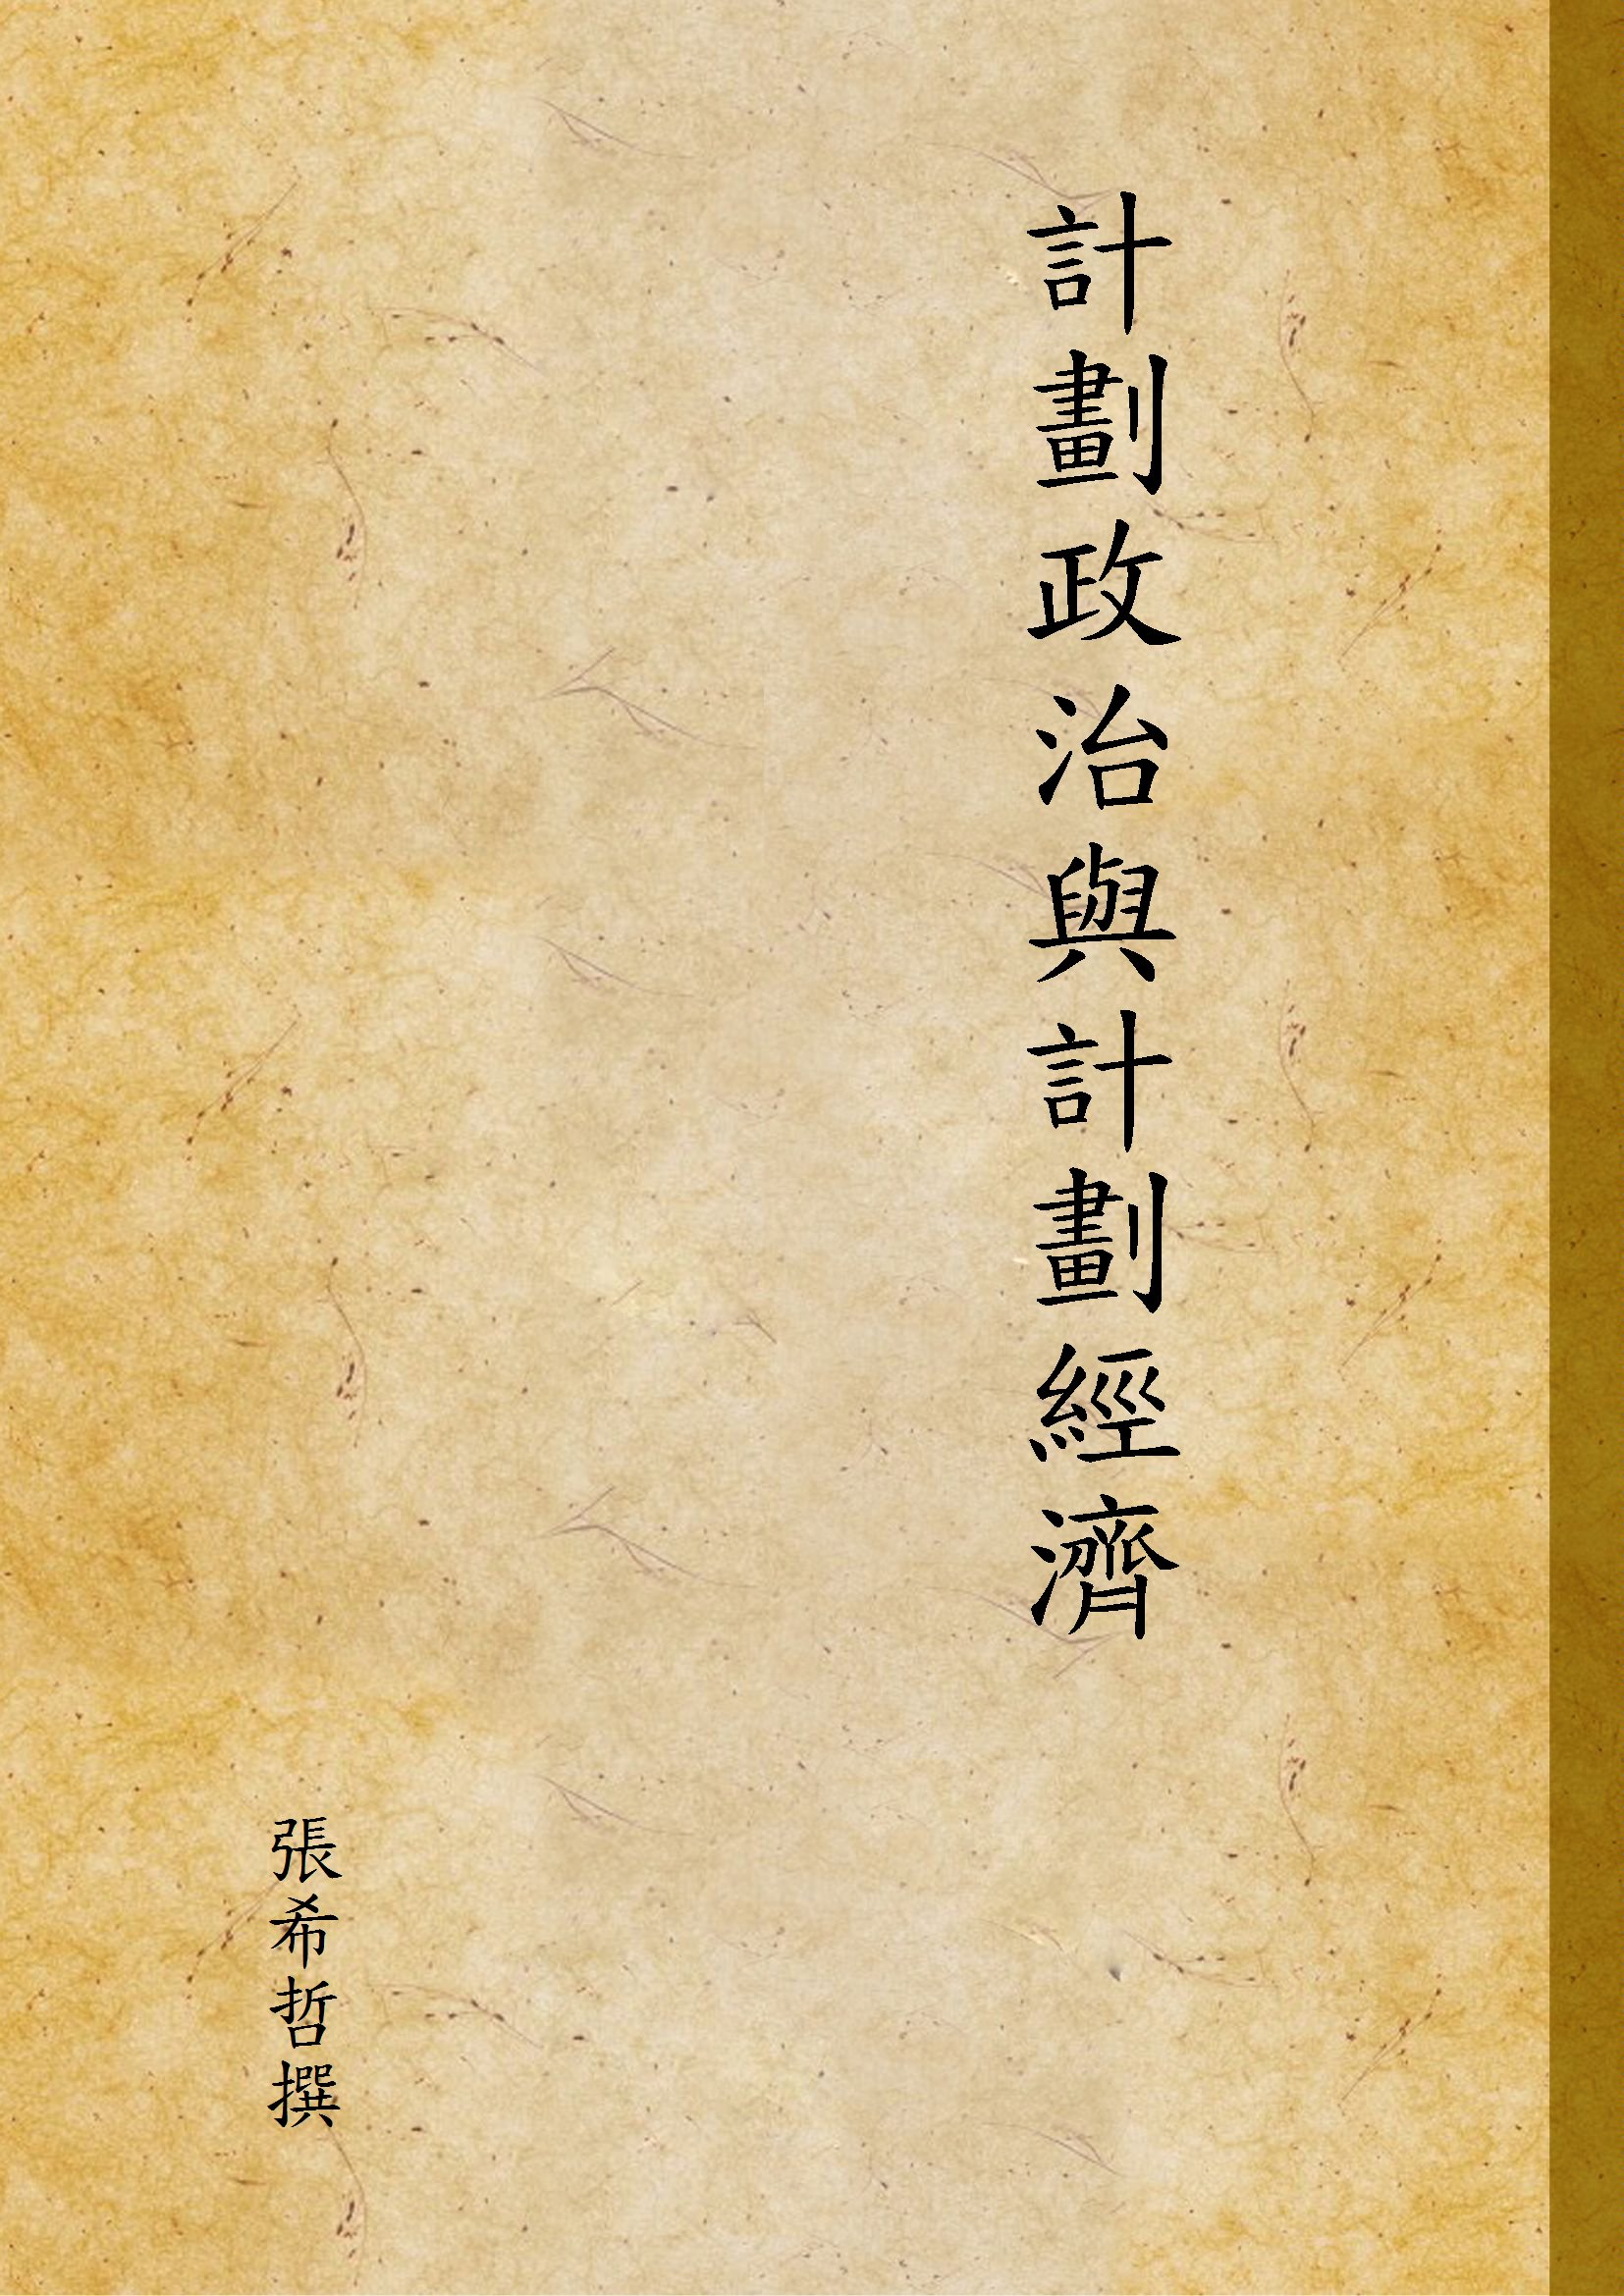 計劃政治與計劃經濟
張希哲撰